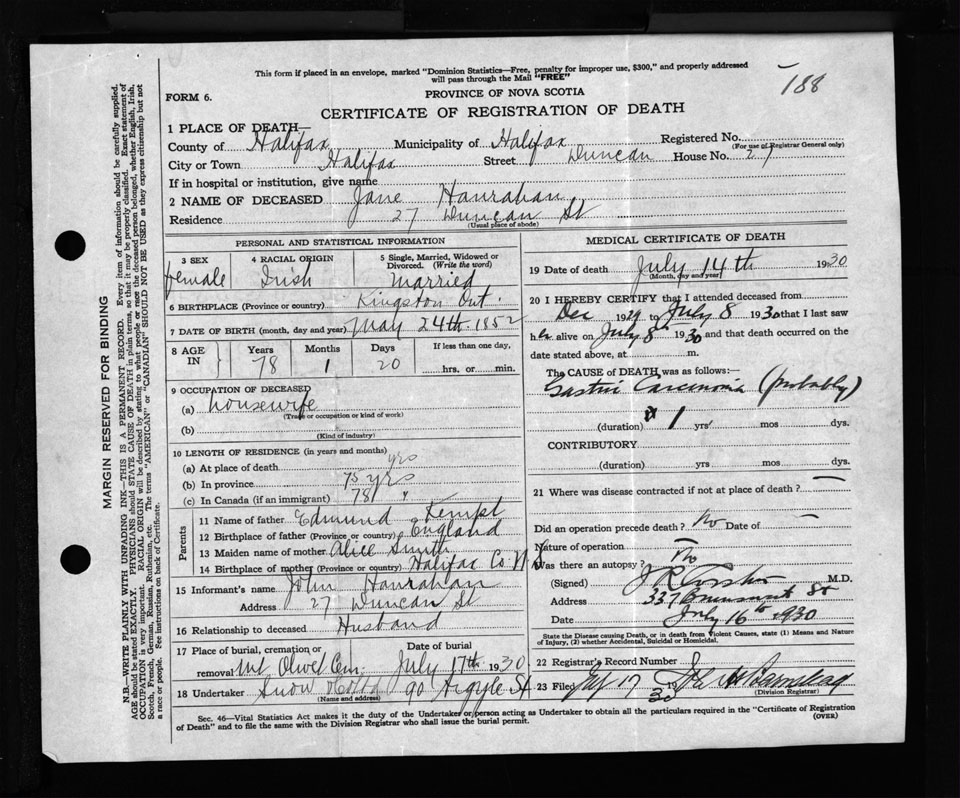 This form if placed in an envelope, marked "Dominion Statistics—Free, penalty for improper use, $300," and properly addressed
will pass through the Mail "FREE"
188
FORM 6.
PROVINCE OF NOVA SCOTIA
CERTIFICATE OF REGISTRATION OF DEATH
1 PLACE OF DEATH—
County of Halifax Municipality of Halifax Registered No.
(For use of Registrar General only)
City or Town Halifax Street Duncan House No. 27
If in hospital or institution, give name
2 NAME OF DECEASED Jane Hanrahan
Residence 27 Duncan St
(Usual place of abode)
PERSONAL AND STATISTICAL INFORMATION
3 SEX 4 RACIAL ORIGIN 5 Single, Married, Widowed or Divorced. (Write the word)
female Irish Married
6 BIRTHPLACE (Province or country) Kingston Ont.
7 DATE OF BIRTH (month, day and year) May 24th 1852
8 AGE IN Years Months Days If less than one day,
78 1 20 hrs. or min.
9 OCCUPATION OF DECEASED
(a) housewife
(Trade or occupation or kind of work)
(b)
(Kind of industry)
10 LENGTH OF RESIDENCE (in years and months)
(a) At place of death yrs
(b) In province 75 yrs
(c) In Canada (if an immigrant) 78 "
Parents
11 Name of father Edmund Kempt
12 Birthplace of father (Province or country) England
13 Maiden name of mother Alice Smith
14 Birthplace of mother (Province or country) Halifax Co N S
15 Informant's name John Hanrahan
Address 27 Duncan St
16 Relationship to deceased Husband
17 Place of burial, cremation or removal Date of burial
Mt Olivet Cem. July 17th 1930
18 Undertaker Snow 90 Argyle St
(Name and address)
MEDICAL CERTIFICATE OF DEATH
19 Date of death July 14th 1930
(Month, day and year)
20 I HEREBY CERTIFY that I attended deceased from
Dec 1929 to July 8 1930 that I last saw
her alive on July 8th 1930 and that death occurred on
date stated above, at m.
The CAUSE of DEATH was as follows:—
Gastric Carcinoma (probably)
(duration) 1 yrs mos dys.
CONTRIBUTORY
(duration) yrs mos dys.
21 Where was disease contracted if not at place of death? —
Did an operation precede death? No Date of —
Nature of operation —
Was there an autopsy? No
(Signed) J R M.D.
Address 337 St
Date July 16th 1930
State the Disease causing Death, or in death from Violent Causes, state (1) Means and Nature
of Injury, (2) whether Accidental, Suicidal or Homicidal.
22 Registrar's Record Number
23 Filed July 17 30
(Division Registrar)
Sec. 46—Vital Statistics Act makes it the duty of the Undertaker or person acting as Undertaker to obtain all the particulars required in the "Certificate of Registration
of Death" and to file the same with the Division Registrar who shall issue the burial permit. (OVER)
MARGIN RESERVED FOR BINDING
N.B.—WRITE PLAINLY WITH UNFADING INK—THIS IS A PERMANENT RECORD. Every item of information should be carefully supplied.
AGE should be stated EXACTLY. PHYSICIANS should STATE CAUSE OF DEATH in plain terms, so that it may be properly classified. Exact statement of
OCCUPATION is very important. RACIAL ORIGIN will be described by stating to what people or race the deceased person belonged, whether English, Irish,
Scotch, French, German, Russian, Ruthenian, etc. The terms "AMERICAN" or "CANADIAN" SHOULD NOT BE USED as they express citizenship but not
a race or people. See instructions on back of Certificate.